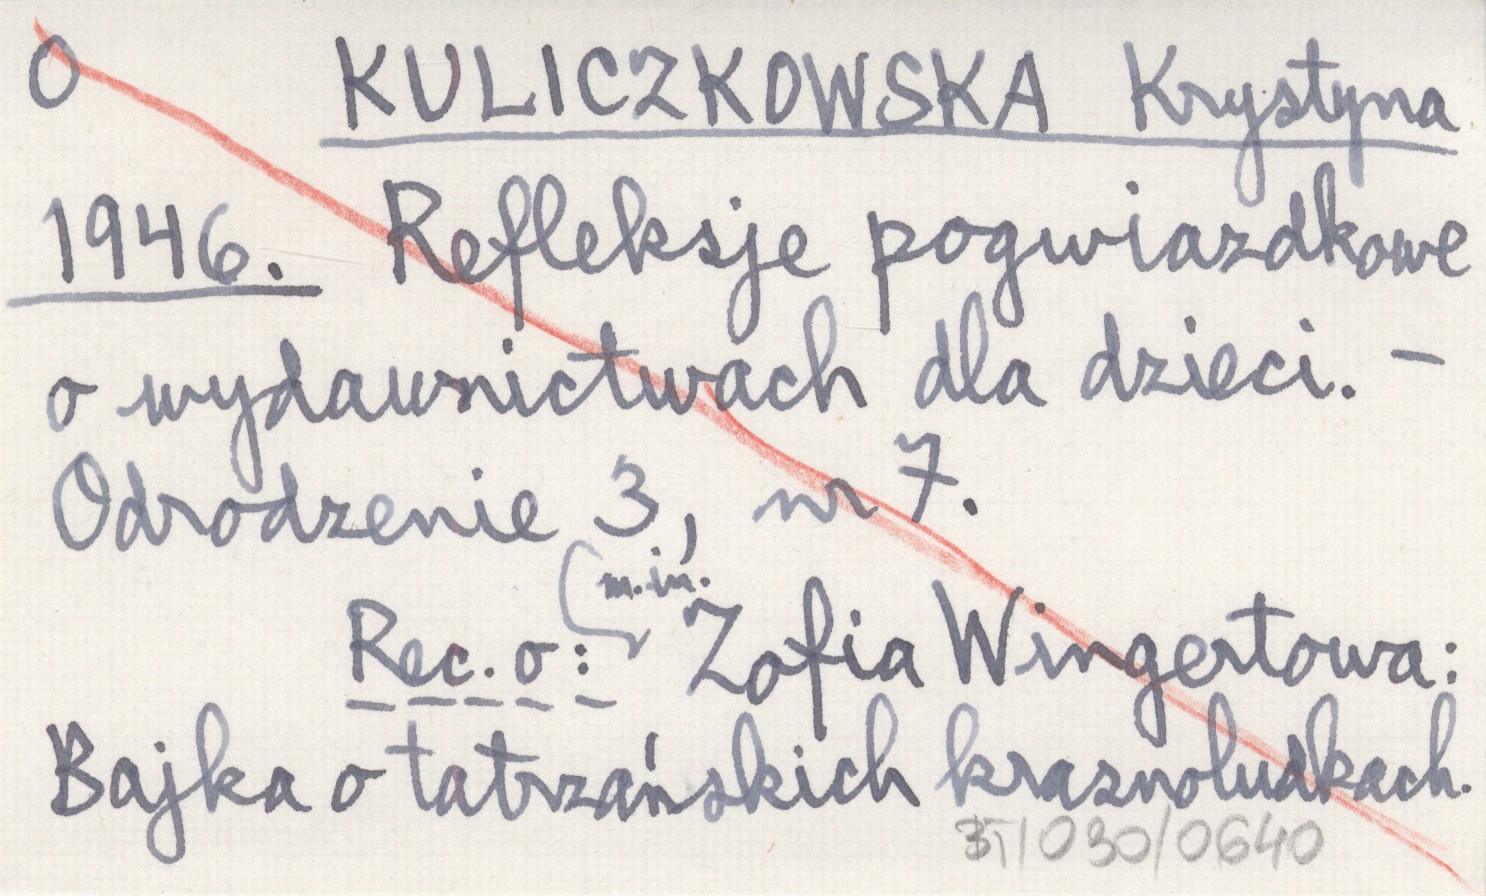 O KULICZKOWSKA Krystyna
1946. Refleksje pogwiazdkowe
o wydawnictwach dla dzieci. –
Odrodzenie 3, nr 7.
m.in.
Rec. o: Zofia Wingertowa:
Bajka o tatrzańskich krasnoludkach.
/030/0640